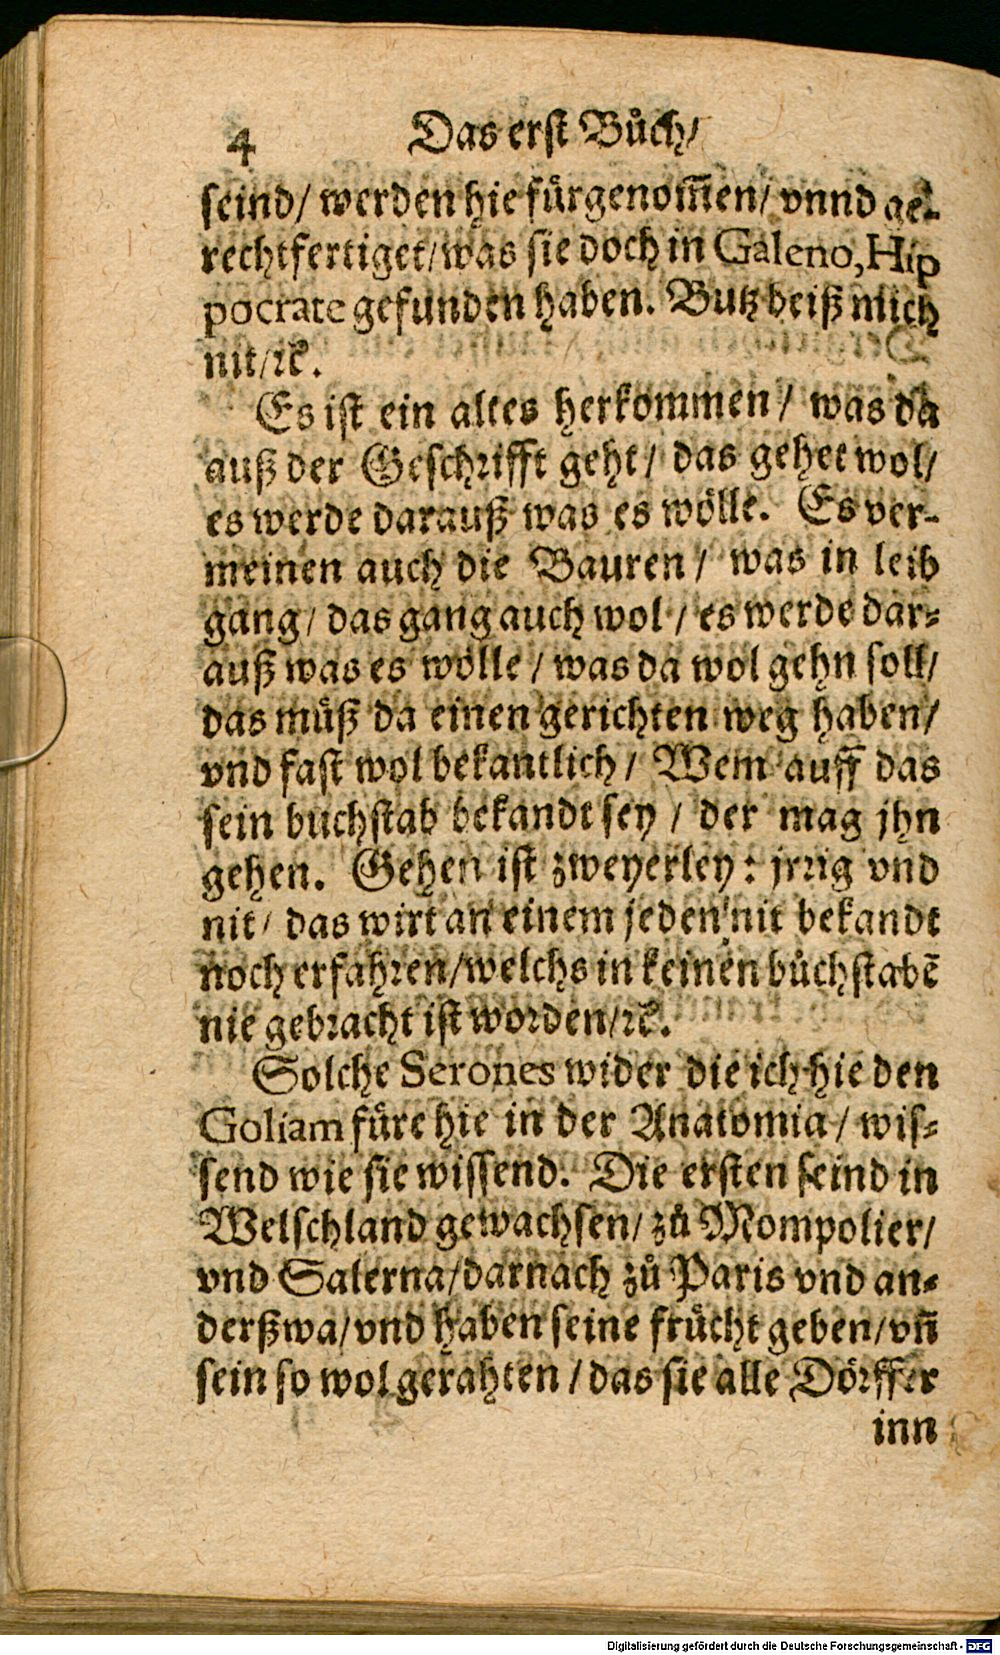 4 Das erst Bůch/
seind/ werden hie fürgenom̃en/ vnnd ge-
rechtfertiget/was sie doch in Galeno, Hip
pocrate gefunden haben. Butz beiß mich
nit/ꝛc̃.
Es ist ein altes herkommen/ was da
auß der Geschrifft geht/ das gehet wol/
es werde darauß was es wölle. Es ver-
meinen auch die Bauren/ was in leib
gang/ das gang auch wol/ es werde dar-
auß was es wölle/ was da wol gehn soll/
das můß da einen gerichten weg haben/
vnd fast wol bekantlich/ Wem auff das
sein buchstab bekandt sey/ der mag jhn
gehen. Gehen ist zweyerley: jrrig vnd
nit/ das wirt an einem jeden nit bekandt
noch erfahren/welchs in keinen bůchstabẽ
nie gebracht ist worden/ꝛc̃.
Solche Serones wider die ich hie den
Goliam füre hie in der Anatomia/ wis-
send wie sie wissend. Die ersten seind in
Welschland gewachsen/ zů Mompolier/
vnd Salerna/darnach zů Paris vnd an-
derßwa/vnd haben seine frücht geben/vn̄
sein so wol gerahten/das sie alle Dörffer
inn
Digitalisierung gefördert durch die Deutsche Forschungsgemeinschaft - DFG